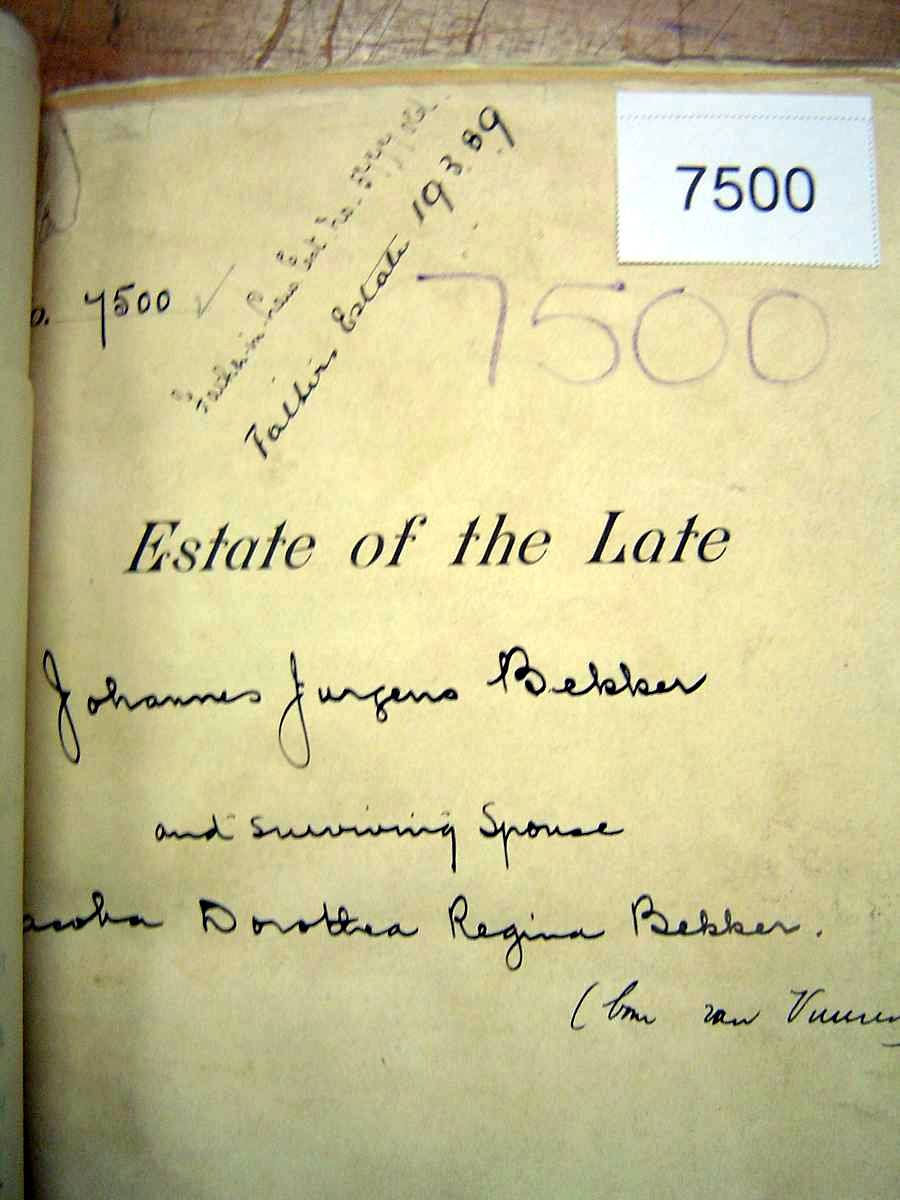 7500
o. 7500
Father in Law Est No.
Father's Estate 19389
7500
Estate of the Late
Johannes Jurgens Bekker
and surviving Spouse
acoba Dorothea Regina Bekker.
(born van Vuuren